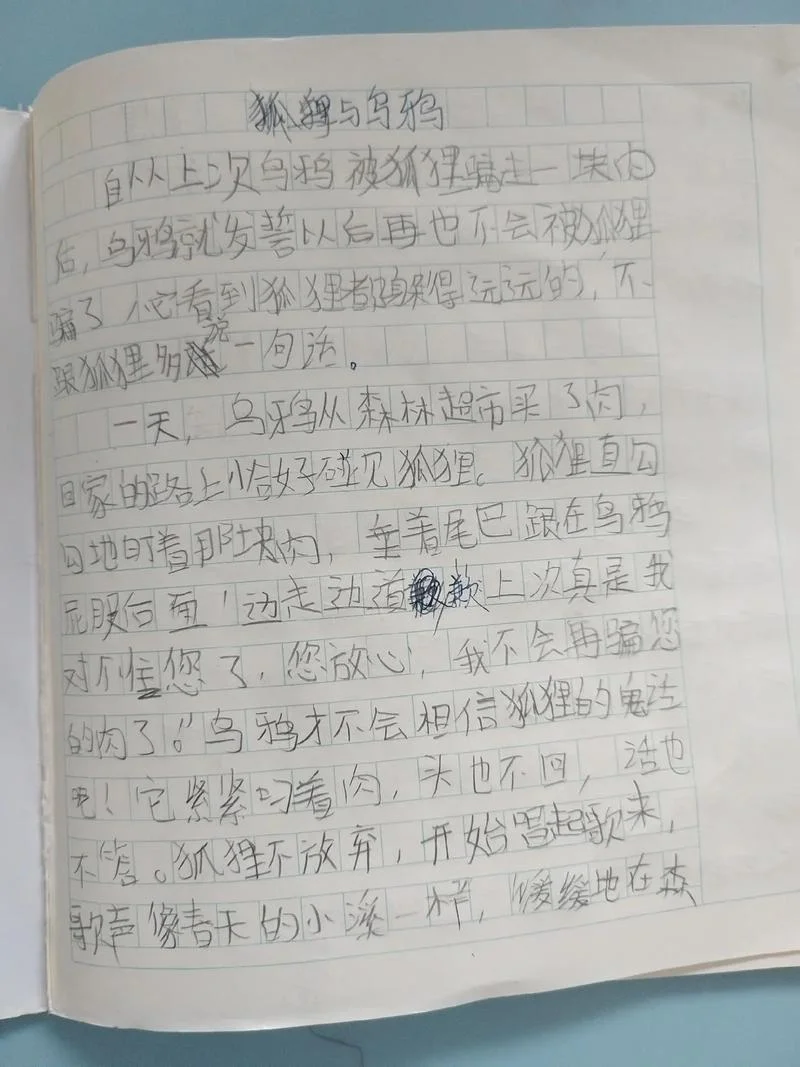 狐狸与乌鸦
自从上次乌鸦被狐狸骗走一块肉
后,乌鸦就发誓以后再也不会被狐狸
骗了,它看到狐狸都躲得远远的,不
跟狐狸多说一句话。
一天,乌鸦从森林超市买了肉,
回家的路上恰好碰见狐狸。狐狸直勾
勾地盯着那块肉,垂着尾巴跟在乌鸦
屁股后面,边走边道歉上次真是我
对不住您了,您放心,我不会再骗您
的肉了。"乌鸦才不会相信狐狸的鬼话
呢!它紧紧叼着肉,头也不回,话也
不答。狐狸不放弃,开始唱起歌来,
歌声像春天的小溪一样,缓缓地在森